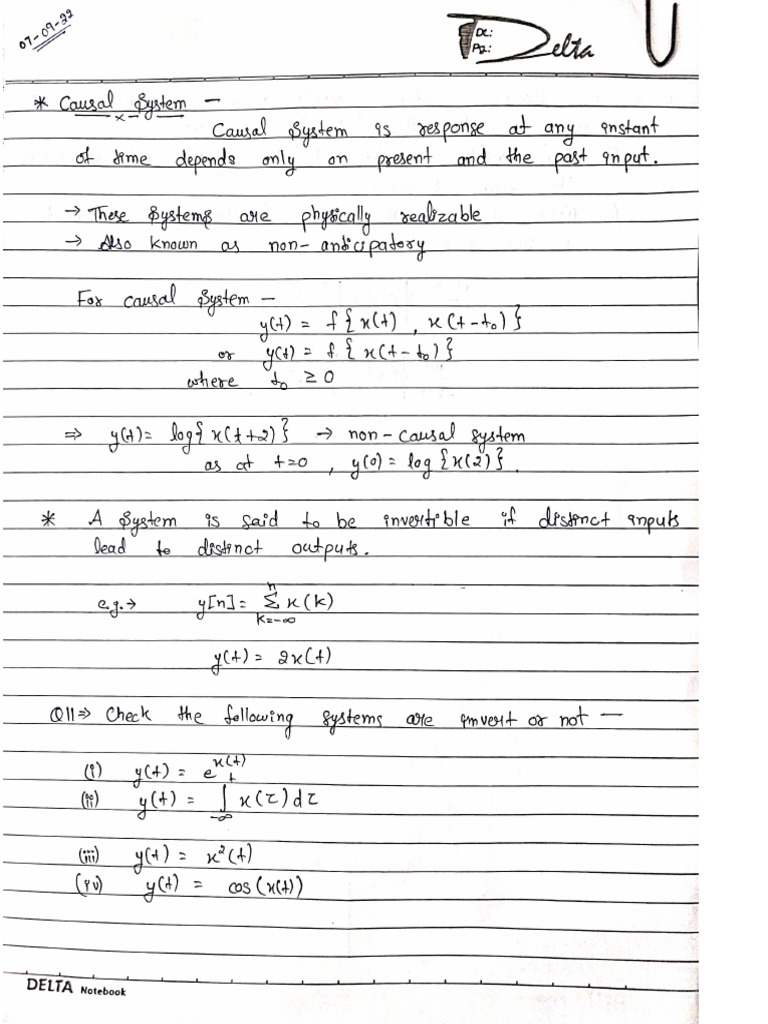 07-09-22
Dt:
Pg:
Delta
* Causal System -
Causal System is response at any instant
of time depends only on present and the past input.
→ These systems are physically realizable
→ Also known as non-anticipatory
For causal system -
y(t) = f{x(t), x(t-t₀)}
or y(t) = f{x(t-t₀)}
where t₀ ≥ 0
⇒ y(t) = log{x(t+2)} → non-causal system
as at t=0, y(0) = log{x(2)}.
* A system is said to be invertible if distinct inputs
lead to distinct outputs.
e.g.→ y[n] = Σ_{k=-∞}^{n} x(k)
y(t) = 2x(t)
Q11⇒ Check the following systems are invert or not -
(i) y(t) = e^{x(t)}
(ii) y(t) = ∫_{-∞}^{t} x(τ)dτ
(iii) y(t) = x²(t)
(iv) y(t) = cos(x(t))
DELTA Notebook